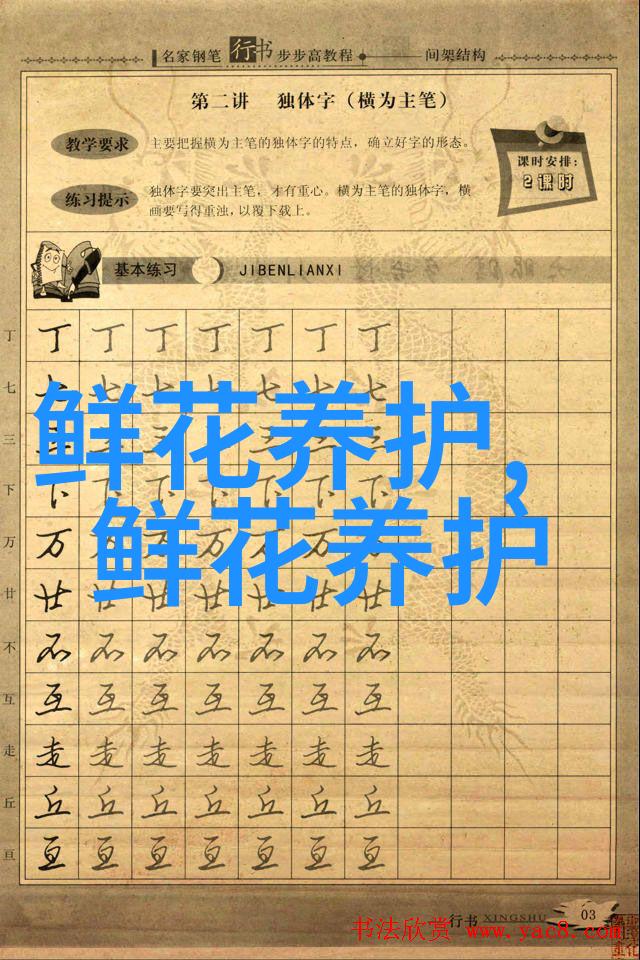 名家钢笔行书步步高教程 间架结构
第二讲 独体字(横为主笔)
教学要求 主要把握横为主笔的独体字的特点，确立好字的形态。
课时安排:
2课时
练习提示 独体字要突出主笔，才有重心。横为主笔的独体字，横
画要写得重浊，以覆下载上。
基本练习 JIBENLIANXI
丁 丁 丁 丁 丁 丁 丁 丁
七 七 七 七 七 七 七 七
鲜花养护,
三 三 三 三 三 三
下 下 下 下 下 下 下 下
鲜花养护
万 万 万 万 万 万 万 万
廿 廿 廿 廿 廿 廿 廿 廿
不 不 不 不 不 不 不 不
互 互 互 互 互 互 互 互
走 走 走 走 走 走 走 走
丘 丘 丘 丘 丘 丘 丘 丘
亘 亘 亘 亘 亘 亘 亘 亘
行书 XINGSHU 03
书法欣赏 www.yac8.com